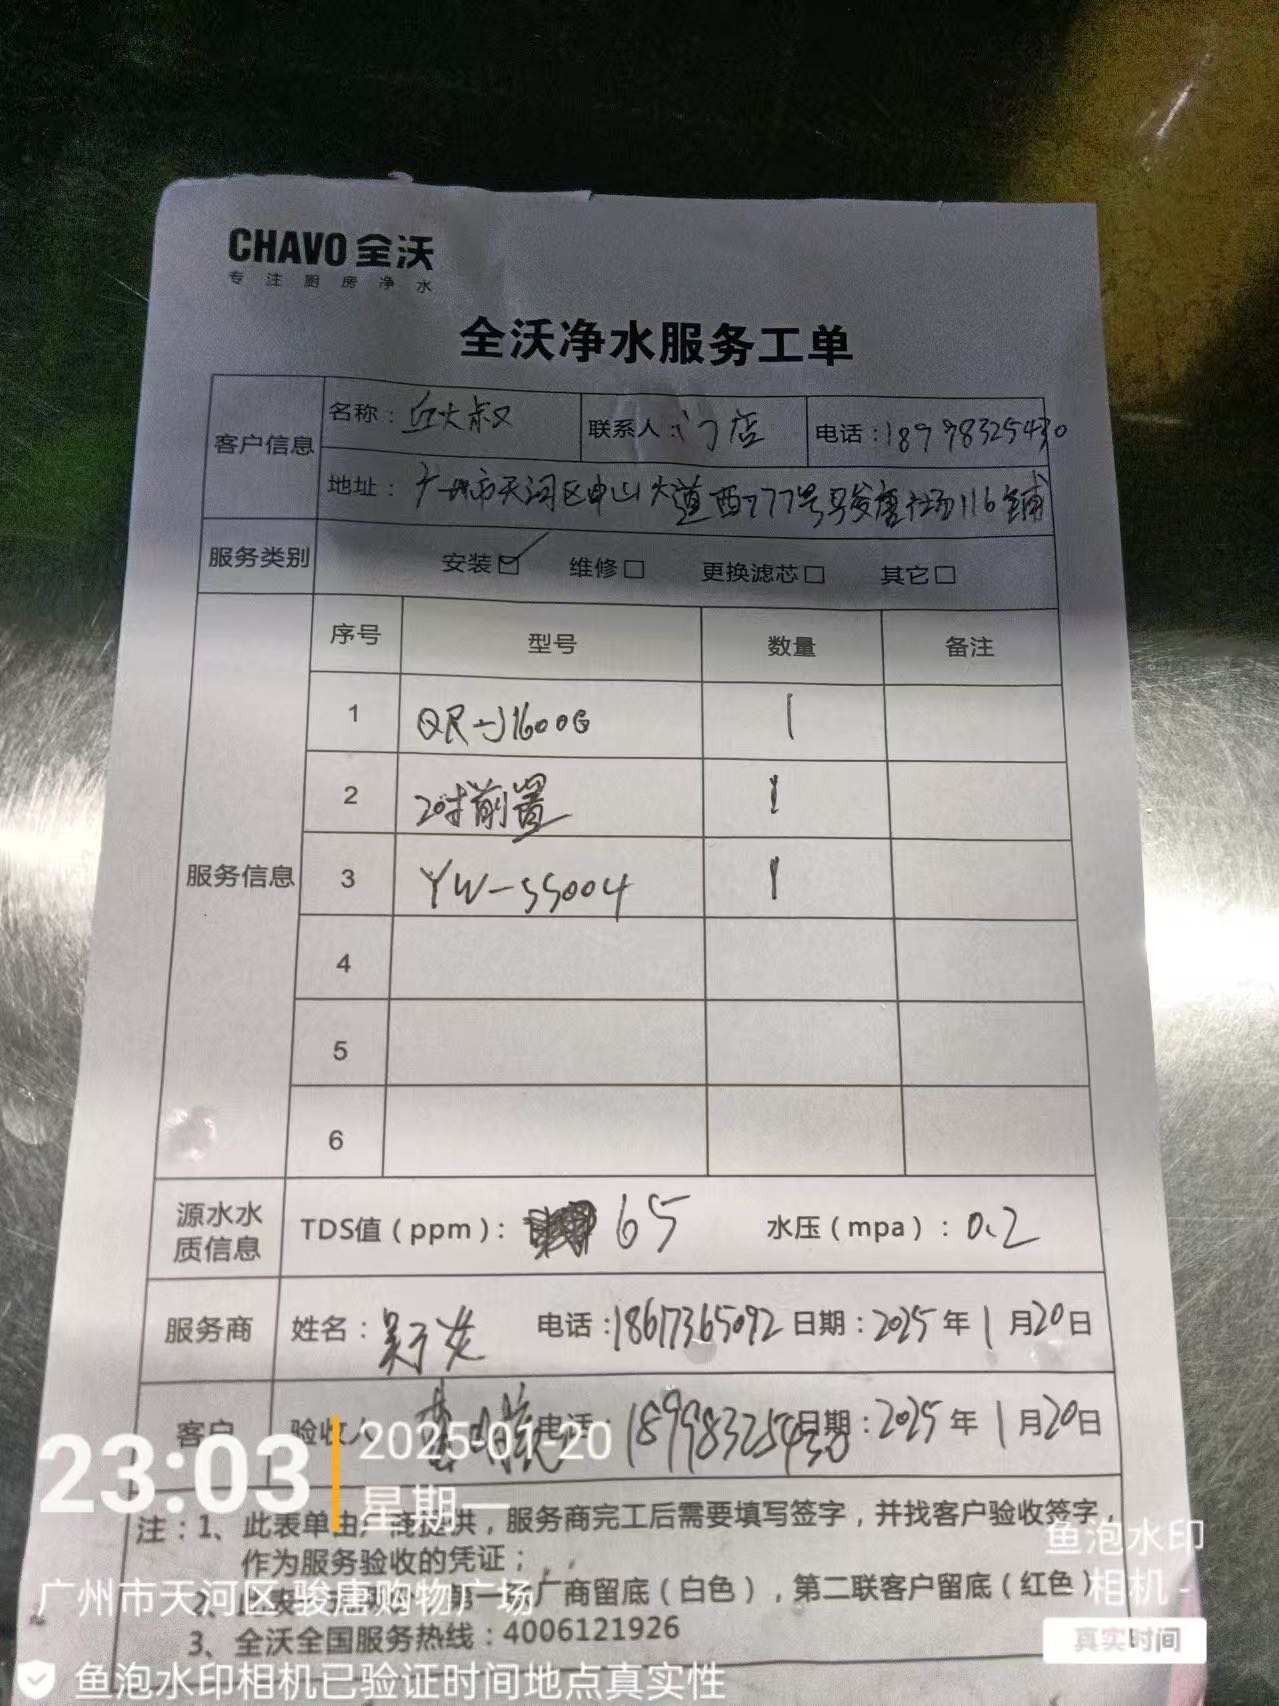 CHAVO 全沃
专注厨房净水
全沃净水服务工单
客户信息
名称：丘大叔 联系人：门店 电话：18998325430
地址：广州市天河区中山大道西777号骏唐广场116铺
服务类别 安装☑ 维修□ 更换滤芯□ 其它□
服务信息
序号 型号 数量 备注
1 QR-J1600G 1
2 20寸前置 1
3 YW-SS004 1
4
5
6
源水水质信息 TDS值（ppm）：65 水压（mpa）：0.2
服务商 姓名： 电话：18617365092 日期：2025年1月20日
客户 验收人 电话：18998325430 日期：2025年1月20日
注：1、此表单由厂商提供，服务商完工后需要填写签字，并找客户验收签字，
作为服务验收的凭证；
2、 第一联厂商留底（白色），第二联客户留底（红色）
3、全沃全国服务热线：4006121926
23:03
2025-01-20
星期一
广州市天河区·骏唐购物广场
鱼泡水印相机已验证时间地点真实性
鱼泡水印
- 相机 -
真实时间